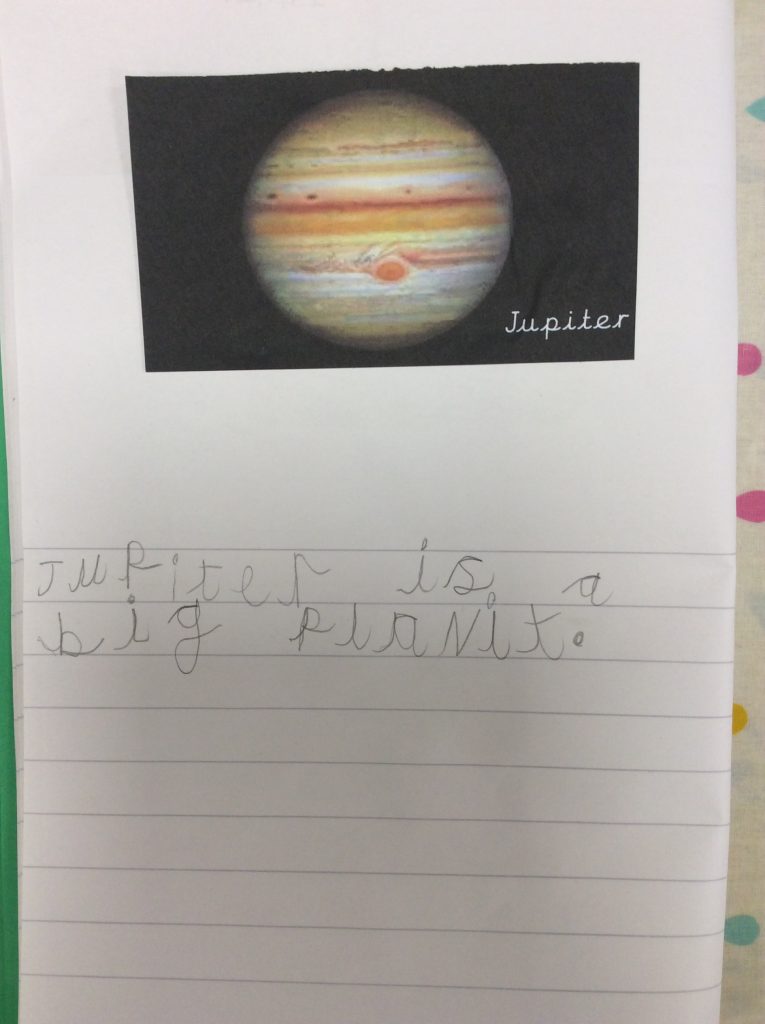 Jupiter
Jupiter is a
big planit.